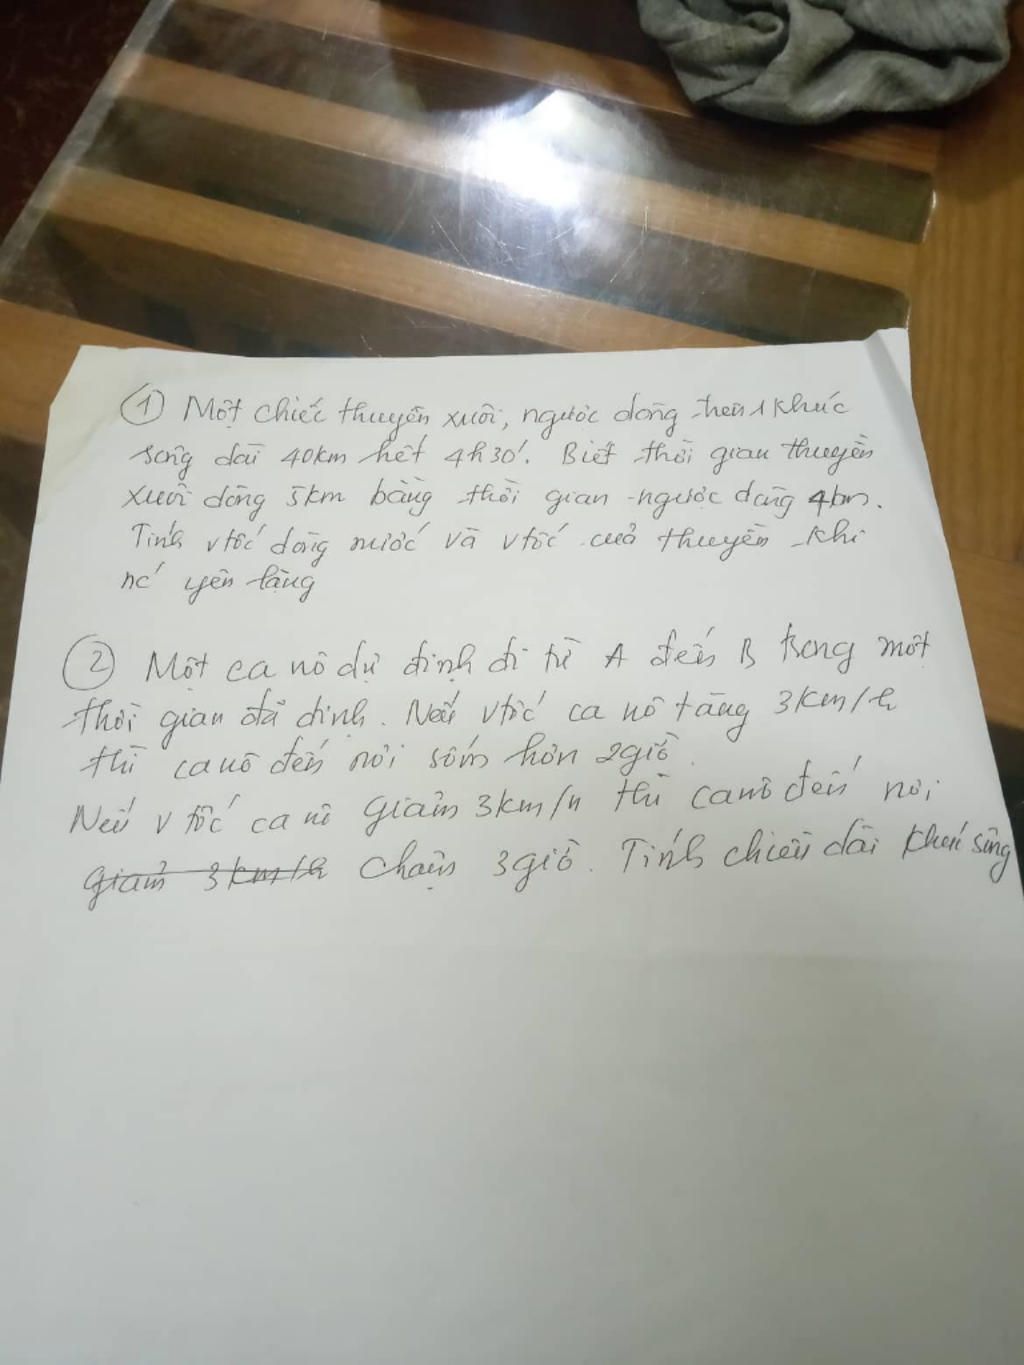 ① Một chiếc thuyền xuôi, ngược dòng trên 1 khúc
sông dài 40km hết 4h30'. Biết thời gian thuyền
xuôi dòng 5km bằng thời gian ngược dòng 4km.
Tính vtốc dòng nước và vtốc của thuyền khi
nc' yên lặng
② Một ca nô dự định đi từ A đến B trong một
thời gian đã định. Nếu vtốc ca nô tăng 3km/h
thì ca nô đến nơi sớm hơn 2giờ.
Nếu v tốc ca nô giảm 3km/h thì ca nô đến nơi
giảm 3km/h chậm 3giờ. Tính chiều dài khúc sông